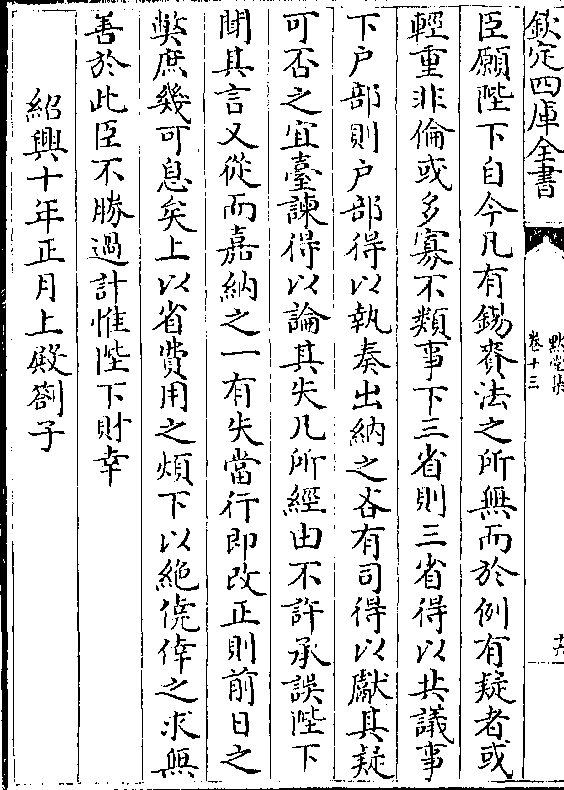 欽定四庫全書
默堂集
卷十三
臣願陛下自今凡有錫賚法之所無而於例有疑者或
輕重非倫或多寡不類事下三省則三省得以共議事
下户部則户部得以執奏出納之吝有司得以獻其疑
可否之宜臺諫得以論其失凡所經由不許承誤陛下
聞其言又從而嘉納之一有失當行即改正則前日之
弊庶幾可息矣上以省費用之煩下以絶僥倖之求無
善於此臣不勝過計惟陛下財幸
紹興十年正月上殿劄子